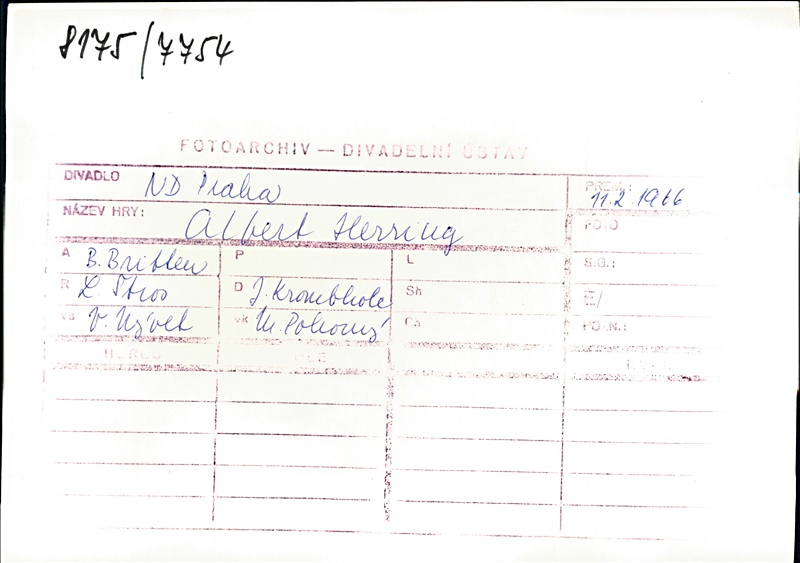 8175/7754
FOTOARCHIV — DIVADELNÍ ÚSTAV
DIVADLO ND Praha PREM.: 11.2 1966
NÁZEV HRY: Albert Herring FOTO
A B. Britten P L S.G.:
R L. Štros D J. Krombholc Sh
vs V. Nývlt vk M. Pokorný Ch
HEREC ROLE